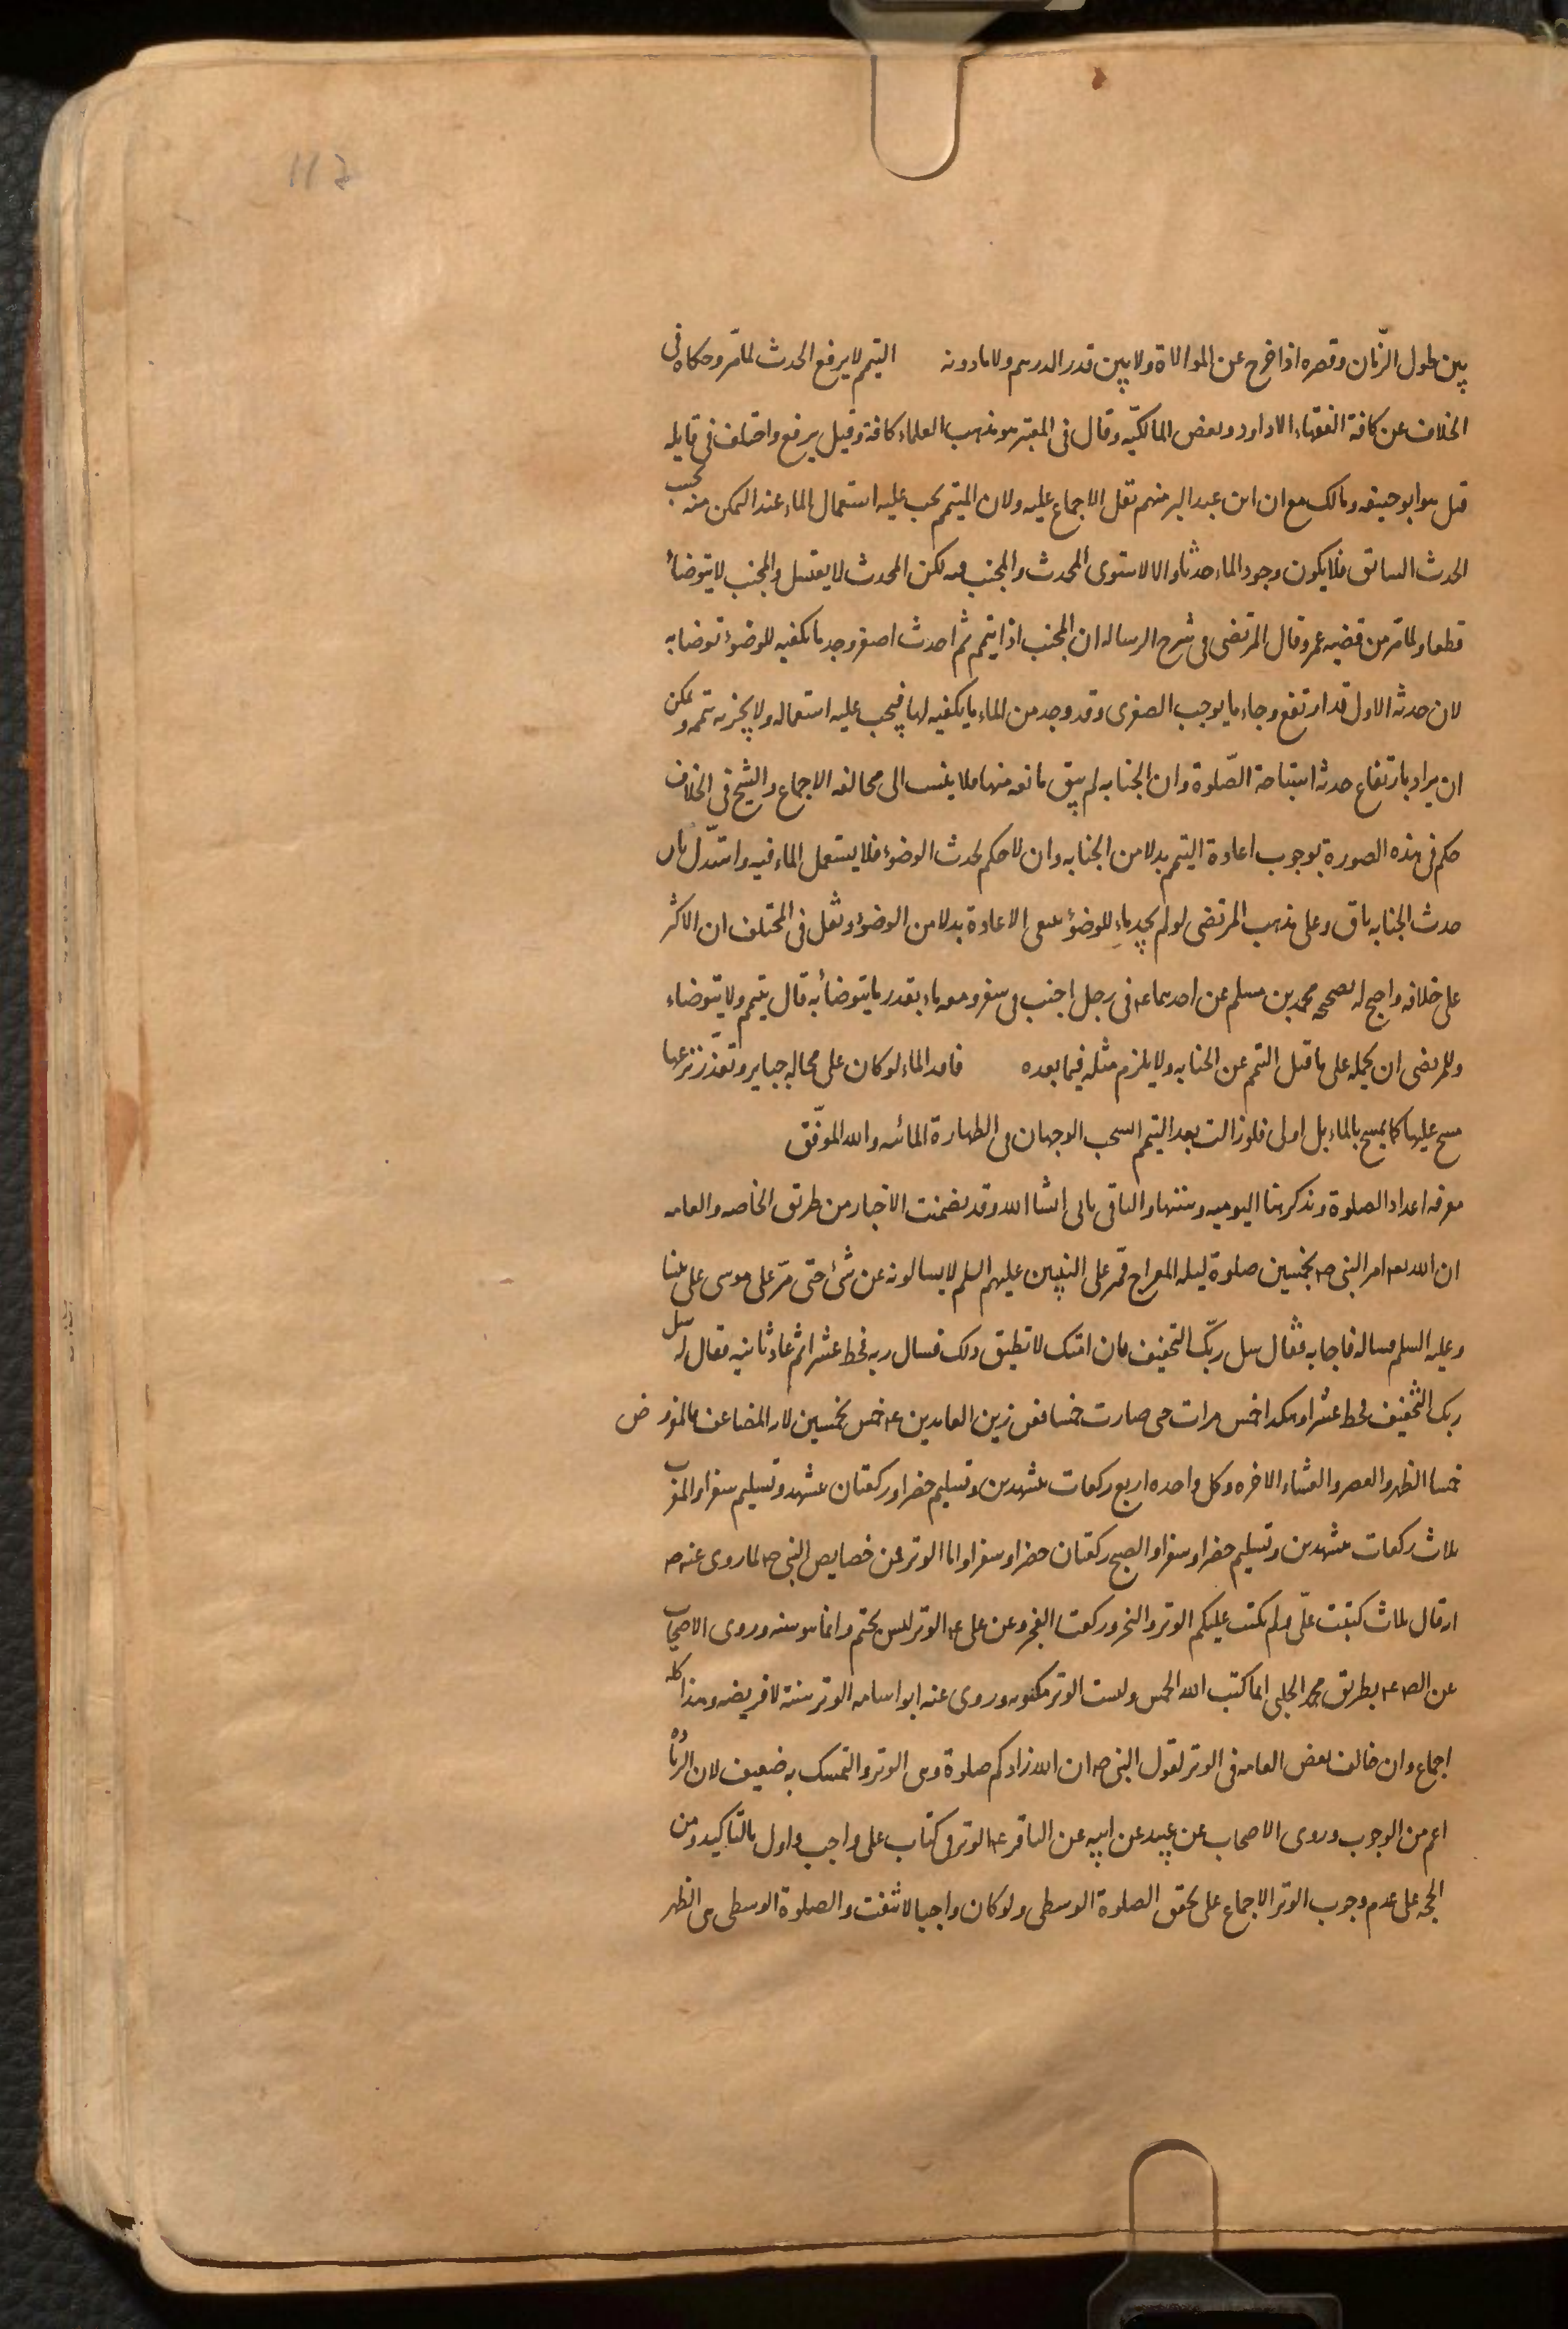 117
بين طول الزّمان وقصره اذا خرج عن الموالاة ولا بين قدر الدرهم ولا مادونه التيمم لا يرفع الحدث لما مرّ وحكاه فى
الخلاف عن كافة الفقهاء الا داود وبعض المالكيّه وقال فى المعتبر هو مذهب العلماء كافة وقيل يرفع واختلف فى قايله
قيل هو ابو حنيفه ومالك مع ان ابن عبد البر منهم نقل الاجماع عليه ولان المتيمم يجب عليه استعمال الماء عند التمكن منه بحسب
الحدث السابق فلا يكون وجود الماء حدثا والا لاستوى المحدث والمجنب فيه لكن المحدث لا يغتسل والمجنب لا يتوضأ
قطعا ولما مر من قضيه عمرو قال المرتضى فى شرح الرساله ان المجنب اذا تيمم ثم احدث اصغر وجد ما يكفيه للوضوء توضا به
لان حدثه الاول قد ارتفع وجاء ما يوجب الصغرى وقد وجد من الماء ما يكفيه لها فيجب عليه استعماله ولا يجزيه تيممه ويمكن
ان يراد بارتفاع حدثه استباحة الصّلوة وان الجنابه لم يبق مانعه منها فلا ينسب الى مخالفه الاجماع والشيخ فى الخلاف
حكم فى هذه الصورة بوجوب اعادة التيمم بدلا من الجنابه وان لا حكم لحدث الوضوء فلا يستعمل الماء فيه واستدّل بان
حدث الجنابه باق وعلى مذهب المرتضى لو لم يجد ماء للوضوء ينبغى الاعادة بدلا من الوضوء ونقل فى المختلف ان الاكثر
على خلافه واحتج له بصحيحه محمد بن مسلم عن احدهما ع فى رجل اجنب فى سفر ومعه ماء بقدر ما يتوضأ به قال يتيمم ولا يتوضاء
وللمرتضى ان يحمله على ما قبل التيمم عن الجنابه ولا يلزم مثله فيما بعده فاقد الماء لو كان على محاله جباير وتعذّر نزعها
مسح عليها كما يمسح بالماء بل اولى فلو زالت بعد التيمم انسحب الوجهان فى الطهارة المائيه والله الموفّق
معرفه اعداد الصلوة ونذكر هنا اليوميه وسننها والباقى ياتى انشا الله وقد تضمنت الاخبار من طريق الخاصه والعامه
ان الله تعالى امر النبى ص بخمسين صلوة ليله المعراج فمّر على النبيين عليهم السلم لا يسالونه عن شئ حتى مرّ على موسى على نبينا
وعليه السلم فساله فاجابه فقال سل ربّك التخفيف فان امتك لا تطيق ذلك فسال ربه فحط عشرا ثم عاد ثانيه فقال له سل
ربك التخفيف فحط عشرا وهكذا خمس مرات حتى صارت خمسا فعن زين العابدين ع خمس بخمسين لان المضاعف فالمفروض
خمسا الظهر والعصر والعشاء الاخره وكل واحده اربع ركعات بتشهدين وتسليم حضرا وركعتان بتشهد وتسليم سفرا والمغرب
ثلاث ركعات بتشهدين وتسليم حضرا وسفرا والصبح ركعتان حضرا وسفرا واما الوتر فمن خصايص النبى ص لما روى عنه ص
انه قال ثلاث كتبت علّى ولم تكتب عليكم الوتر والنحر وركعتا الفجر وعن على ع الوتر ليس بحتم وانما هو سنه وروى الاصحاب
عن الص ع بطريق محمد الحلبى انما كتب الله الخمس وليست الوتر مكتوبه وروى عنه ابو اسامه الوتر سنة لا فريضه وهذا كله
اجماع وان خالف بعض العامه فى الوتر لقول النبى ص ان الله زادكم صلوة وهى الوتر والتمسك به ضعيف لان الزيادة
اعم من الوجوب وروى الاصحاب عن عبيد عن ابيه عن الباقر ع الوتر فى كتاب على واجب واول بالتاكيد ومن
الحجه على عدم وجوب الوتر الاجماع على تحقق الصلوة الوسطى ولو كان واجبا لانتفت والصلوة الوسطى هى الظهر